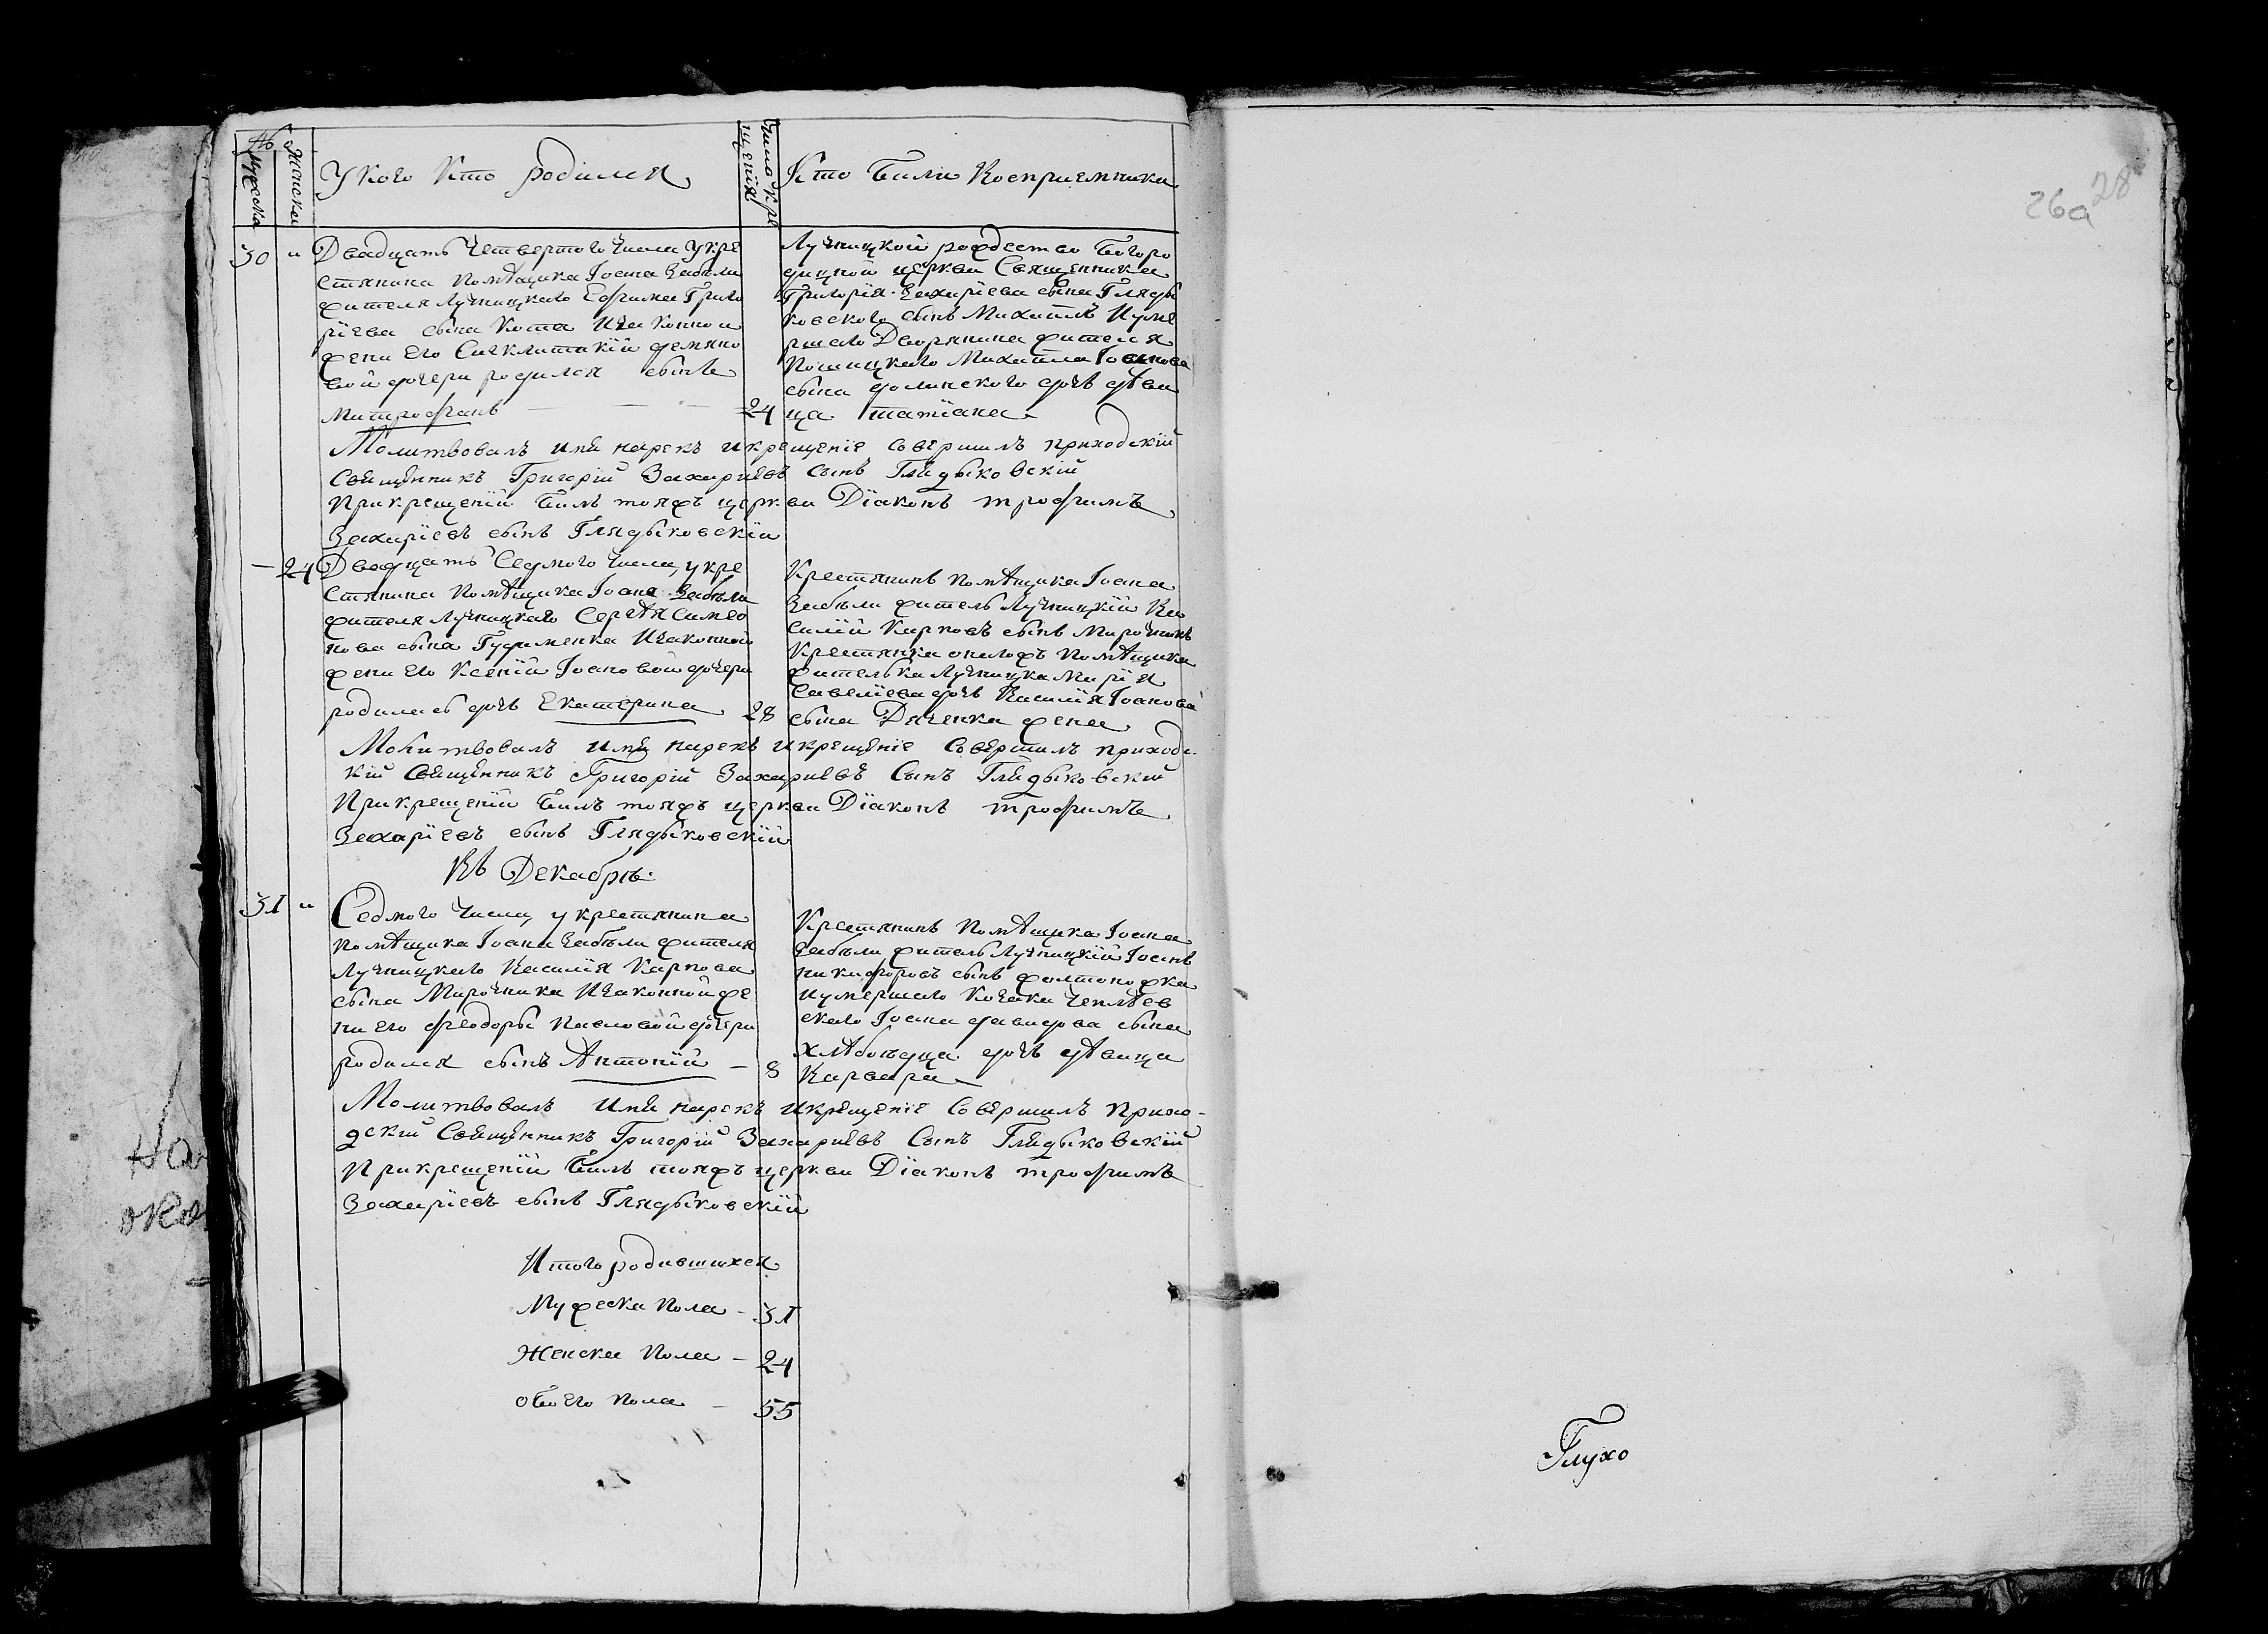 №
Мужеска
Женска
У кого кто родился
Число кре
щенія
Кто били воспріемники
30 "
Двадцать Четвертого Числа У кре
стянина помѣщика Іоана Забѣли
жителя Лучницкаго Ефима Григо
ріева сына Кота и законной
жени его Сигклитикій Демяно
вой дочери родился синъ
Митрофанъ — — — 24
Лучницкой рождество Богоро
дицной церкви Священника
Григорія Захаріева сына Гляды
ковского сынъ Михаилъ и уме
ршаго Дворянина жителя
Михаила Іоанова
сына долинского дочь дѣви
ца татіана
Молитвовалъ имя нарекъ и крещеніе совершилъ приходскій
священникъ Григорій Захаріевъ сынъ Глядыковскій
При крещеній билъ тояжъ церкви Діаконъ трофимъ
Захаріевъ сынъ Глядыковскій
— 24
Двадцать Седмого Числа, у кре
стянина помѣщика Іоана Забѣли
жителя Лучницкаго Сергѣя Симео
нова сына Гуриненка и законной
жени его Ксеній Іоановой дочери
родилась дочь Екатерина 28
Крестянинъ помѣщика Іоана
Забѣли житель Лучницкій Ва
силій Карповъ сынъ Мирочникъ
Крестянка онагожъ помѣщика
жителька Лучницка Марія
Савеліева дочь Василія Іоанова
сына Дяченка жена
Молитвовалъ имя нарекъ и крещеніе совершилъ приходс-
кій священникъ Григорій Захаріевъ Сынъ Глядыковскій
При крещеній билъ тояжъ церкви Діаконъ трофимъ
Захаріевъ сынъ Глядыковскій
Въ Декабрѣ.
31 "
Седмого числа у крестянина
помѣщика Іоана Забѣли жителя
Лучницкаго Василія Карпова
сына Мирочника и законной же
ни его феодоры Павловой дочери
родился сынъ Антоній — 8
Крестянинъ помѣщика Іоана
Забѣли житель Лучницкій Іоанъ
никифоровъ сынъ жолтоножка
и умершаго козака чеплѣев
скаго Іоана давидова сына
хлѣбоѣдца дочь дѣвица
Варвара
Молитвовалъ имя нарекъ и крещеніе совершилъ прихо-
дскій Священникъ Григорій Захаріевъ Сынъ Глядыковскій
При крещеній билъ тояжъ церкви Діаконъ трофимъ
Захаріевъ сынъ Глядыковскій
Итого родившихся
Мужеска пола — 31
Женска пола — 24
обоего пола — 55
28
26а
Глухо